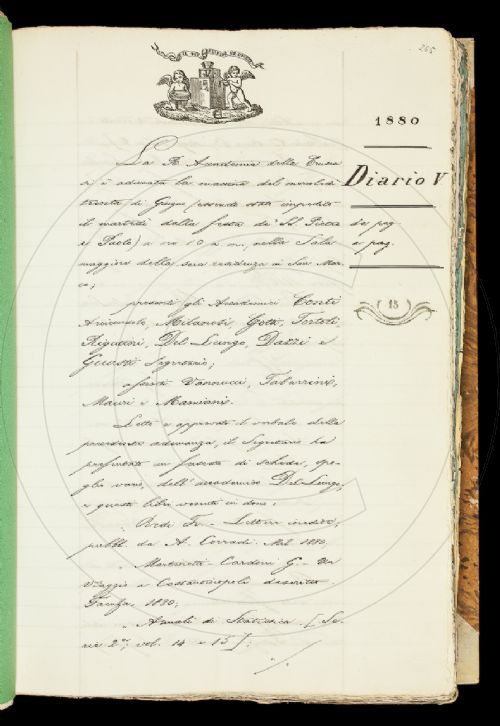 265
1880
Diario V
da pag
a pag.
(18)
La R. Accademia della Crusca
si è adunata la mattina del mercoledì
trenta di Giugno (essendo stata impedita
il martedì dalla festa de' SS. Pietro
e Paolo) a ore 10 a. m. nella Sala
maggiore della sua residenza in San Mar-
co;
presenti gli Accademici Conti
Arciconsolo, Milanesi, Gotti, Tortoli,
Rigutini, Del-Lungo, Dazzi e
Guasti Segretario;
assenti Vannucci, Tabarrini,
Mauri e Mamiani.
Letto e approvato il verbale della
precedente adunanza, il Segretario ha
presentato un fascetto di schede, spo-
glio vario, dell' accademico Del-Lungo,
e questi libri venuti in dono:
Redi Fr. - Lettere inedite,
pubbl. da A. Corradi. Mil. 1880.
G. - Un
Viaggio a Costantinopoli
1880;
Annali di Statistica. [Se-
rie 2ª, vol. 14 e 15];